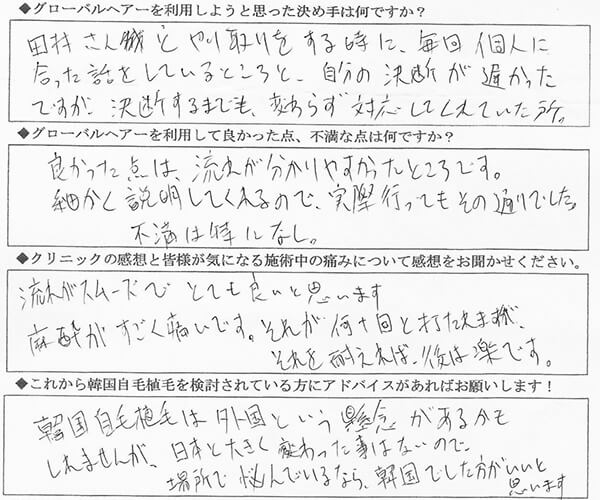 ◆グローバルヘアーを利用しようと思った決め手は何ですか？
田村さん幾とやり取りをする時に、毎回個人に
合った話をしているところと、自分の決断が遅かった
ですが、決断するまでも、変わらず対応してくれていた所。
◆グローバルヘアーを利用して良かった点、不満な点は何ですか？
良かった点は、流れが分かりやすかったところです。
細かく説明してくれるので、実際行ってもその通りでした。
不満は特になし。
◆クリニックの感想と皆様が気になる施術中の痛みについて感想をお聞かせください。
流れがスムーズでとても良いと思います
麻酔がすごく痛いです。それが何十回と打たれますが、
それを耐えれば、後は楽です。
◆これから韓国自毛植毛を検討されている方にアドバイスがあればお願いします！
韓国自毛植毛は外国という懸念があるかも
しれませんが、日本と大きく変わった事はないので、
場所で悩んでいるなら、韓国でした方がいいと
思います